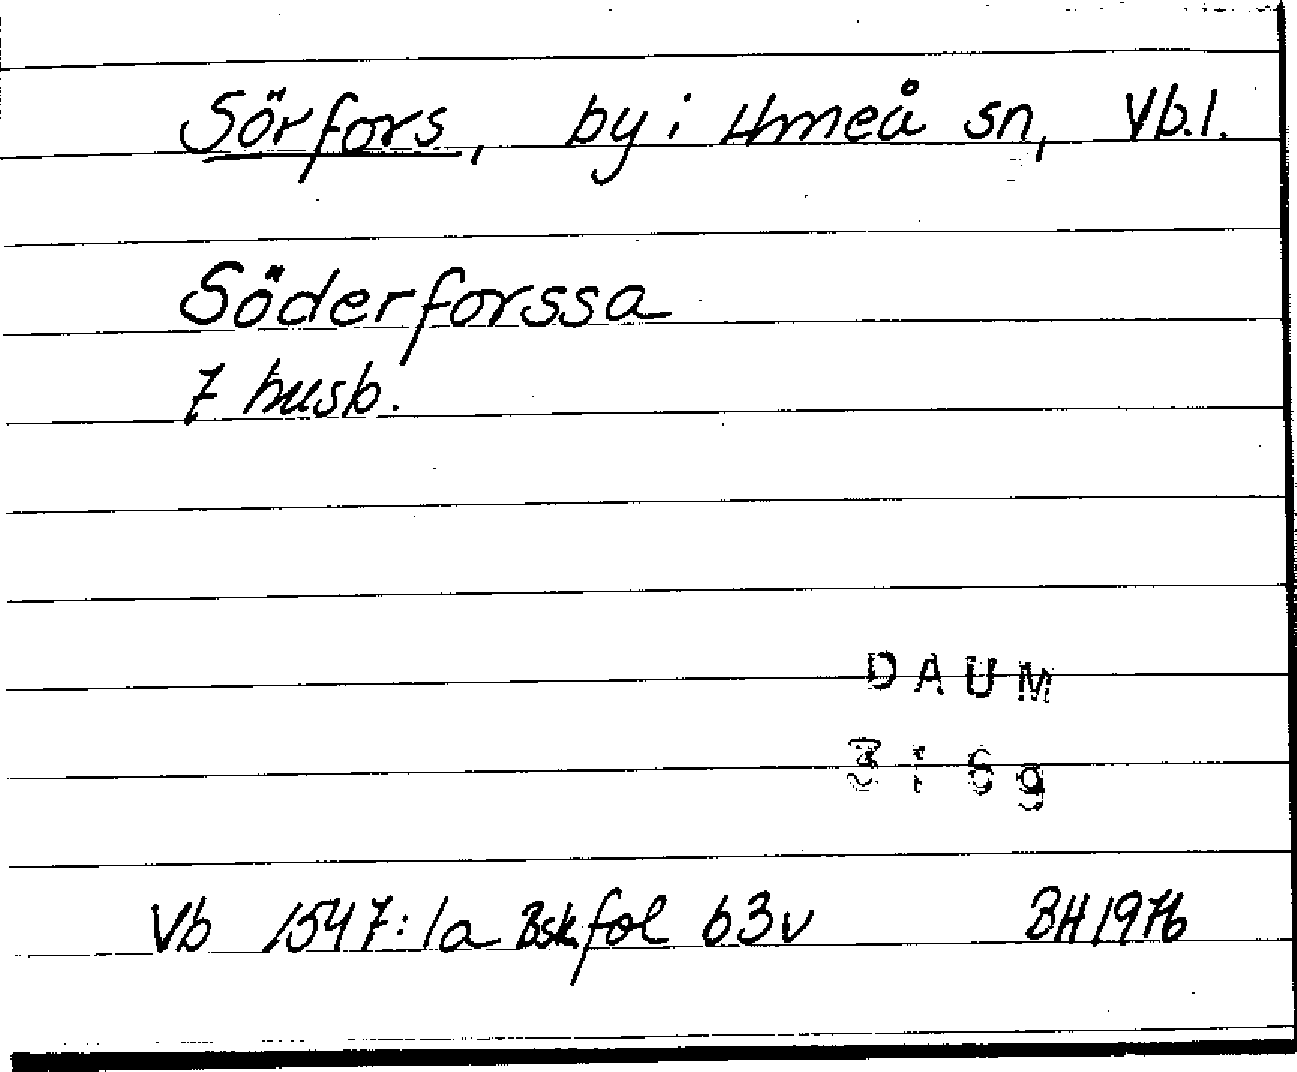 Sörfors, by i Umeå sn, Vb.l.
Söderforssa
7 husb.
DAUM
Vb 1547:1a Bsk fol 63v BH 1976